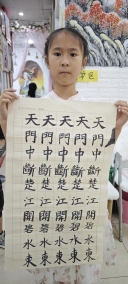 天門中斷楚江開碧水東
天門中斷楚江開碧水東
天門中斷楚江開碧水東
天門中斷楚江開碧水東
天門中斷楚江開碧水東